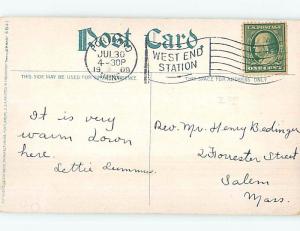 Post Card.
JUL 30
4-30P
WEST END
STATION
THIS SIDE MAY BE USED FOR
THIS SPACE FOR ADDRESS ONLY.
ONE CENT
It is very
warm down
here.
Lettie
Rev. Mr. Henry Bedinger
2 Forrester Street
Salem
Mass.